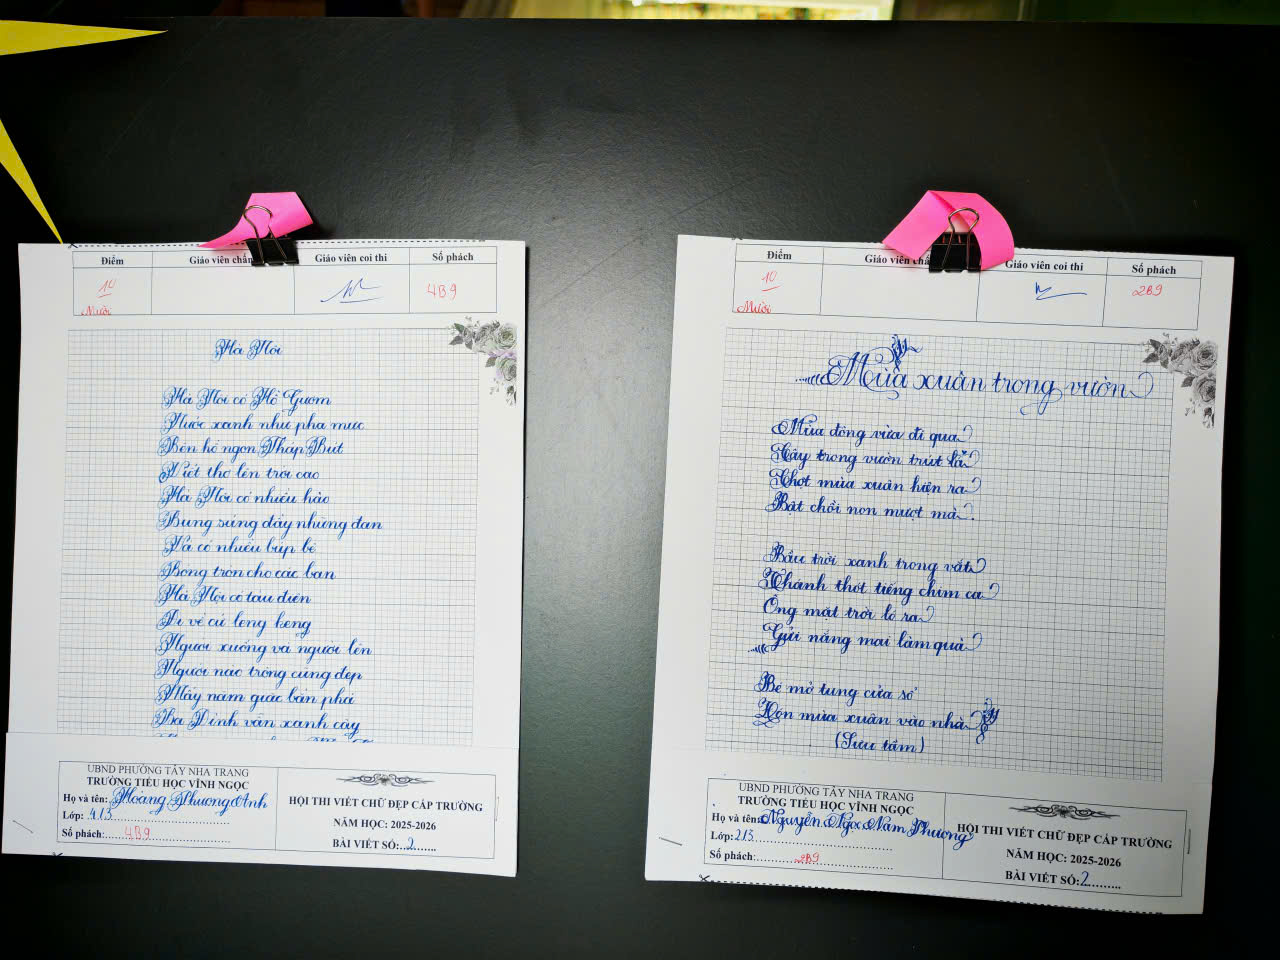 Điểm
Giáo viên chấ
Giáo viên coi thi
Số phách
10
Mười
4B9
Hà Nội
Hà Nội có Hồ Gươm
Nước xanh như pha mực
Bên hồ ngọn Tháp Bút
Viết thơ lên trời cao
Hà Nội có nhiều hào
Bụng súng đầy những đạn
Và có nhiều búp bê
Bóng tròn cho các bạn
Hà Nội có tàu điện
Đi về cứ leng keng
Người xuống và người lên
Người nào trông cũng đẹp
Mấy năm giặc bắn phá
Ba Đình vẫn xanh cây
UBND PHƯỜNG TÂY NHA TRANG
TRƯỜNG TIỂU HỌC VĨNH NGỌC
Họ và tên: Hoàng Phương Anh
Lớp: 4/3
Số phách: 4B9
HỘI THI VIẾT CHỮ ĐẸP CẤP TRƯỜNG
NĂM HỌC: 2025-2026
BÀI VIẾT SỐ: 2
Điểm
Giáo viên chấ
Giáo viên coi thi
Số phách
10
Mười
2B9
Mùa xuân trong vườn
Mùa đông vừa đi qua
Cây trong vườn trút lá
Chợt mùa xuân hiện ra
Bật chồi non mượt mà.
Bầu trời xanh trong vắt
Thánh thót tiếng chim ca
Ông mặt trời ló ra
Gửi nắng mai làm quà
Bé mở tung cửa sổ
Đón mùa xuân vào nhà
(Sưu tầm)
UBND PHƯỜNG TÂY NHA TRANG
TRƯỜNG TIỂU HỌC VĨNH NGỌC
Họ và tên: Nguyễn Ngọc Nam Phương
Lớp: 2/3
Số phách: 2B9
HỘI THI VIẾT CHỮ ĐẸP CẤP TRƯỜNG
NĂM HỌC: 2025-2026
BÀI VIẾT SỐ: 2